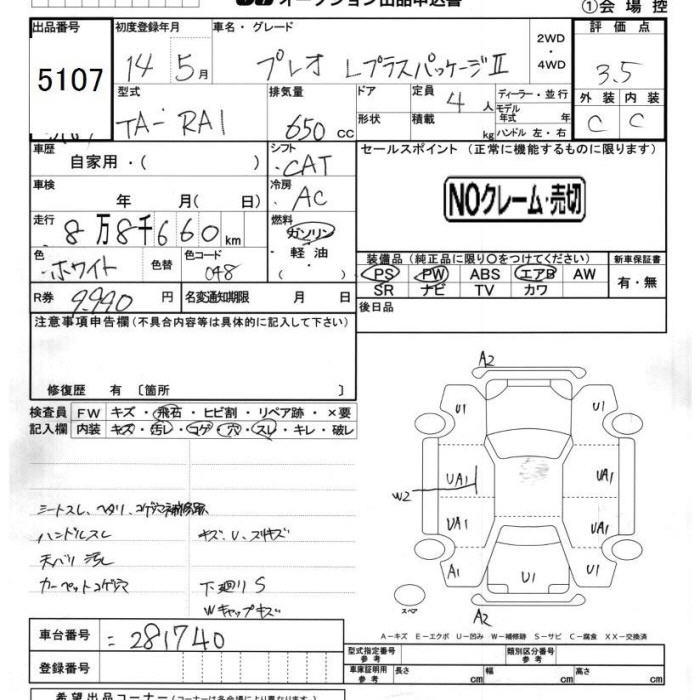 オークション出品申込書
①会場控
出品番号 初度登録年月 車名・グレード 評価点
5107 14年5月 プレオ Lプラスパッケージ II 2WD・4WD 3.5
型式 排気量 ドア 定員 4人 ディーラー・並行 外装 内装
TA-RA1 650cc 形状 積載 kg モデル年式 年 ハンドル 左・右 C C
車歴 自家用・( ) シフト CAT セールスポイント (正常に機能するものに限ります)
車検 年 月( 日) 冷房 AC NOクレーム・売切
走行 8万8千660km 燃料 ガソリン・軽油・( )
色 ホワイト 色替 色コード 048
装備品 (純正品に限り○をつけてください) 新車保証書
PS PW ABS エアB AW 有・無
SR ナビ TV カワ
R券 9,990円 名変通知期限 月 日 後日品
注意事項申告欄 (不具合内容等は具体的に記入して下さい)
修復歴 有 〔箇所 〕
検査員 FW キズ・飛石・ヒビ割・リペア跡・×要
記入欄 内装 キズ・汚レ・コゲ・穴・スレ・キレ・破レ
シートスレ、ヘタリ、コゲ穴補修
ハンドルスレ キズ、U、スリキズ
天バリ汚レ
カーペットコゲ穴 下廻りS
Wキャップキズ
A2
U1 U1
UA1 UA1
W2
UA1 UA1
A1 U1 U1
スペア A2
A-キズ E-エクボ U-凹み W-補修跡 S-サビ C-腐食 XX-交換済
車台番号 =281740
登録番号
型式指定番号 参考 類別区分番号 参考
車庫証明用 参考 長さ cm 幅 cm 高さ cm
希望出品コーナー (コーナーは各会場により異なります)